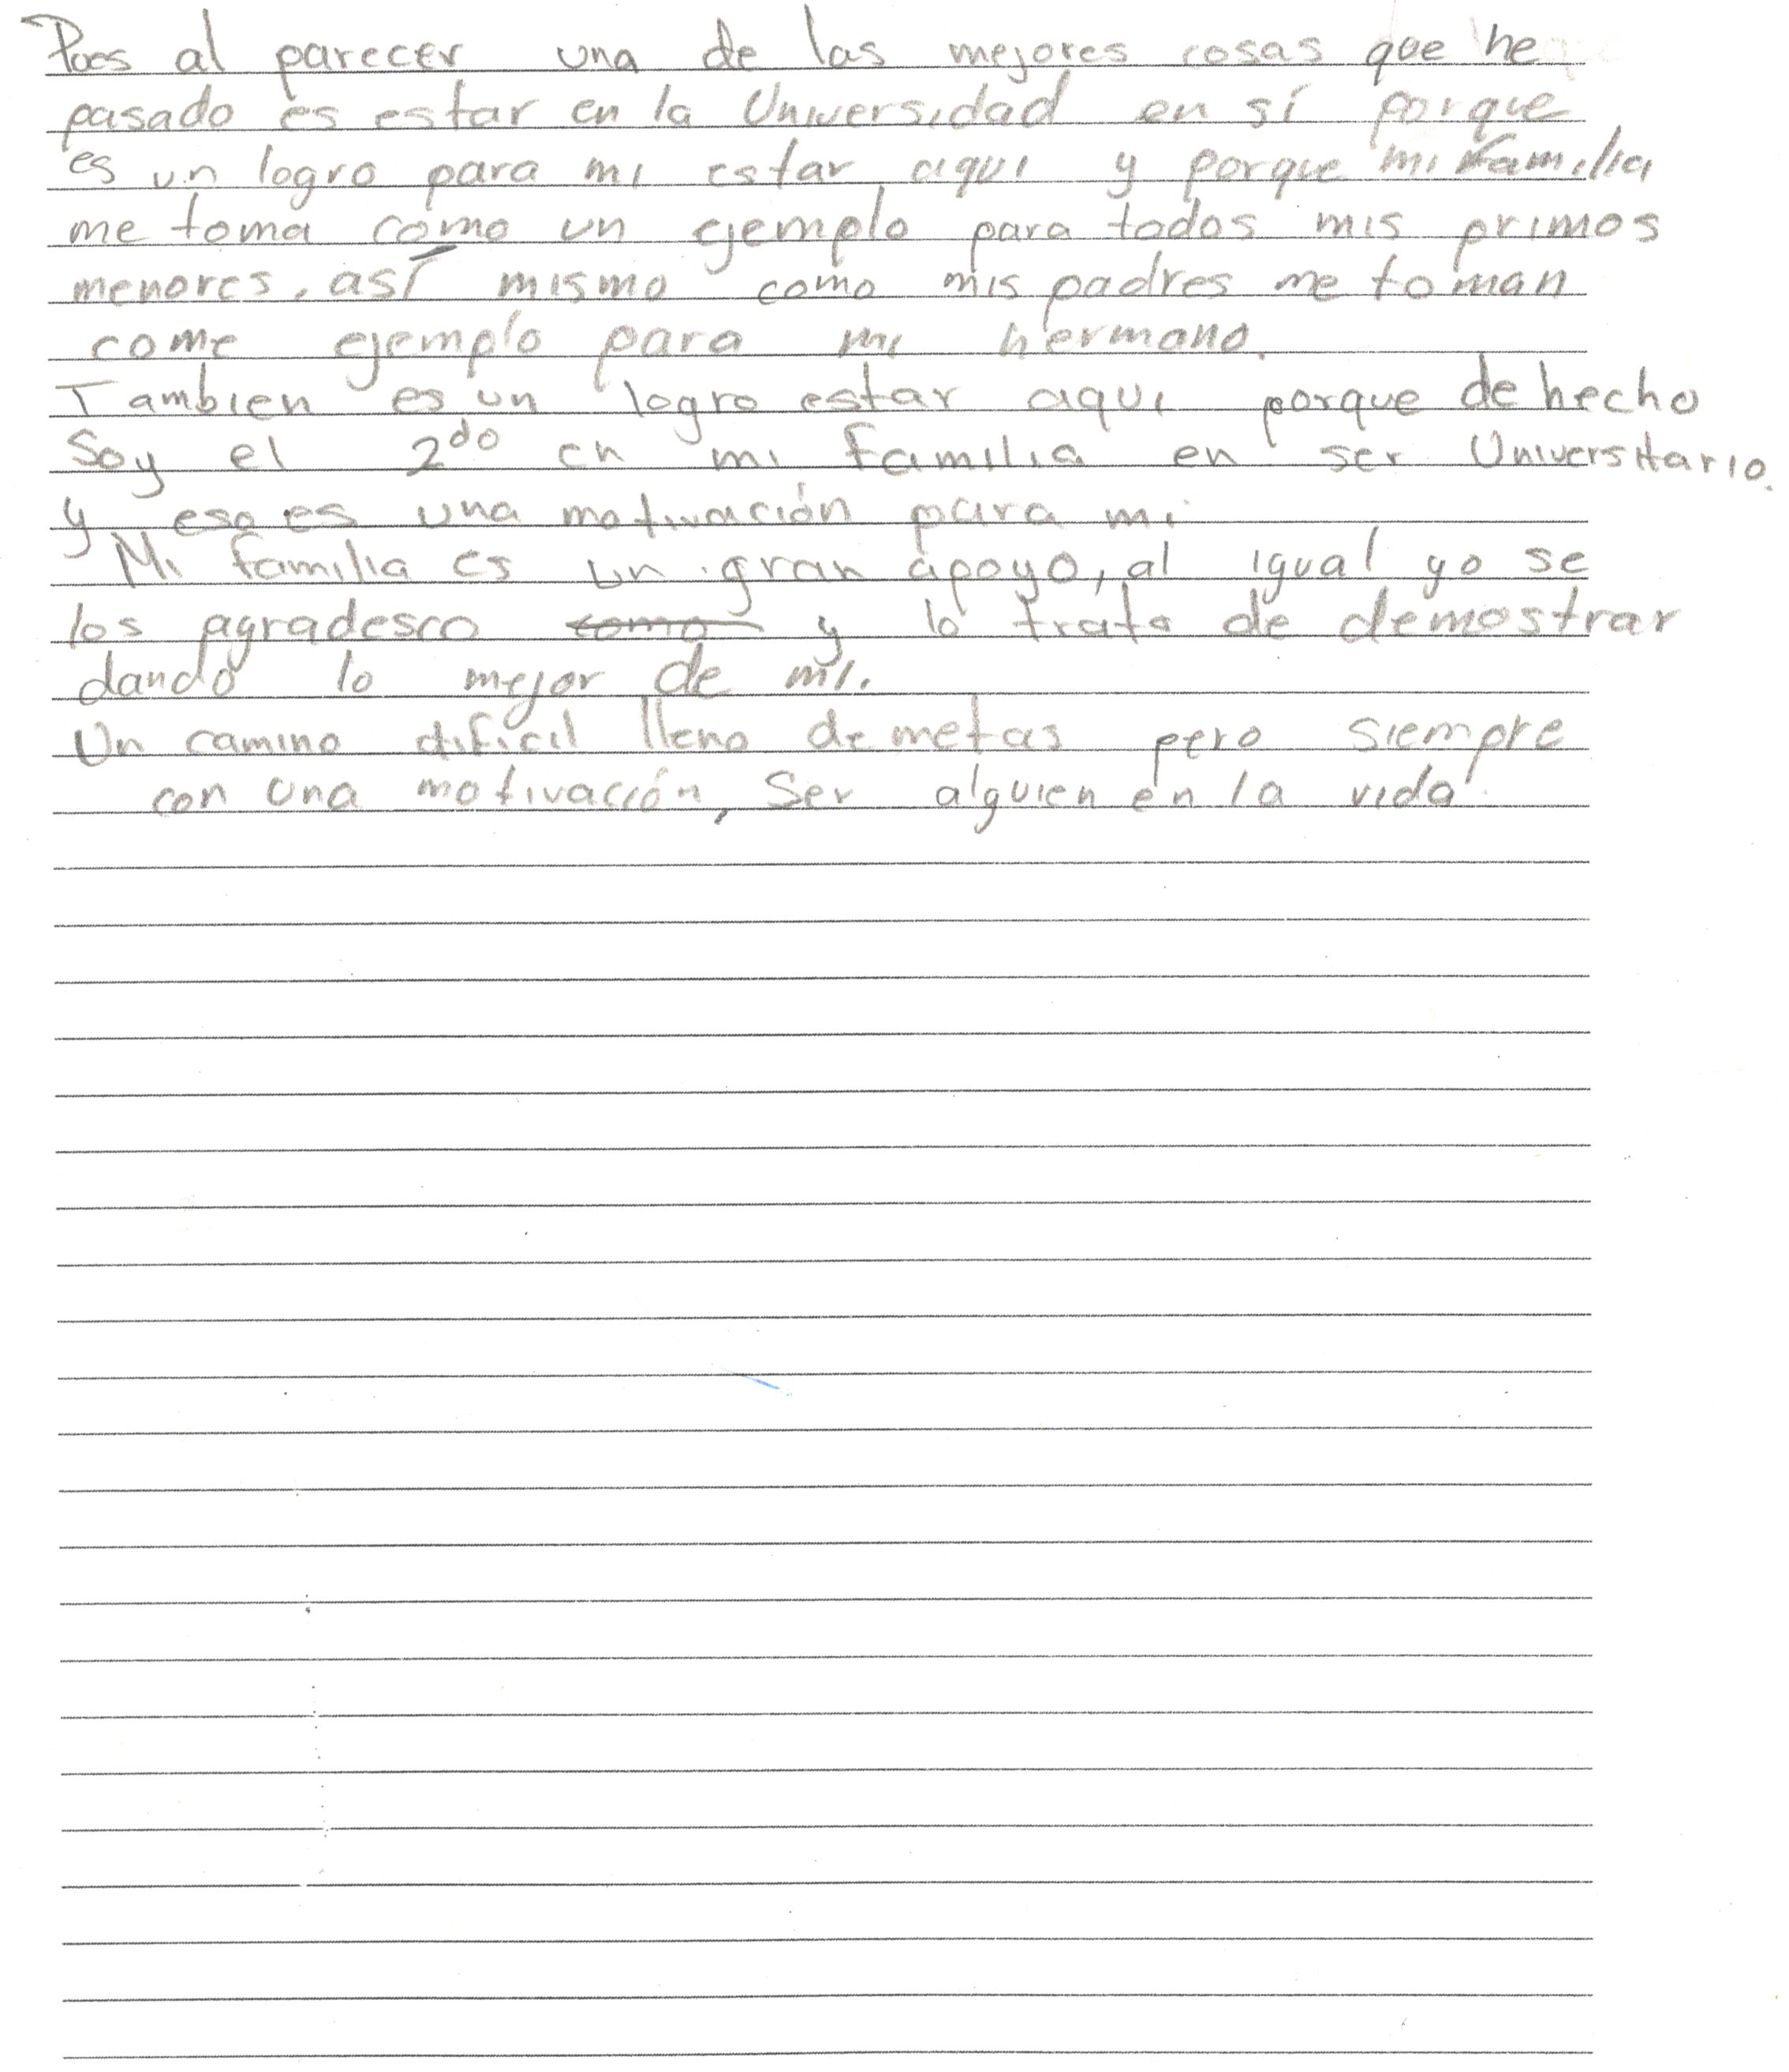 Pues al parecer una de las mejores cosas que he
pasado es estar en la Universidad en sí porque
es un logro para mi estar aqui y porque mi familia
me toma como un ejemplo para todos mis primos
menores, así mismo como mis padres me toman
come ejemplo para mi hermano.
Tambien es un logro estar aqui porque de hecho
Soy el 2do en mi familia en ser Universitario.
y eso es una motivación para mi
Mi familia es un gran apoyo, al igual yo se
los agradesco como y lo trato de demostrar
dando lo mejor de mi.
Un camino dificil lleno de metas pero siempre
con una motivación, Ser alguien en la vida.